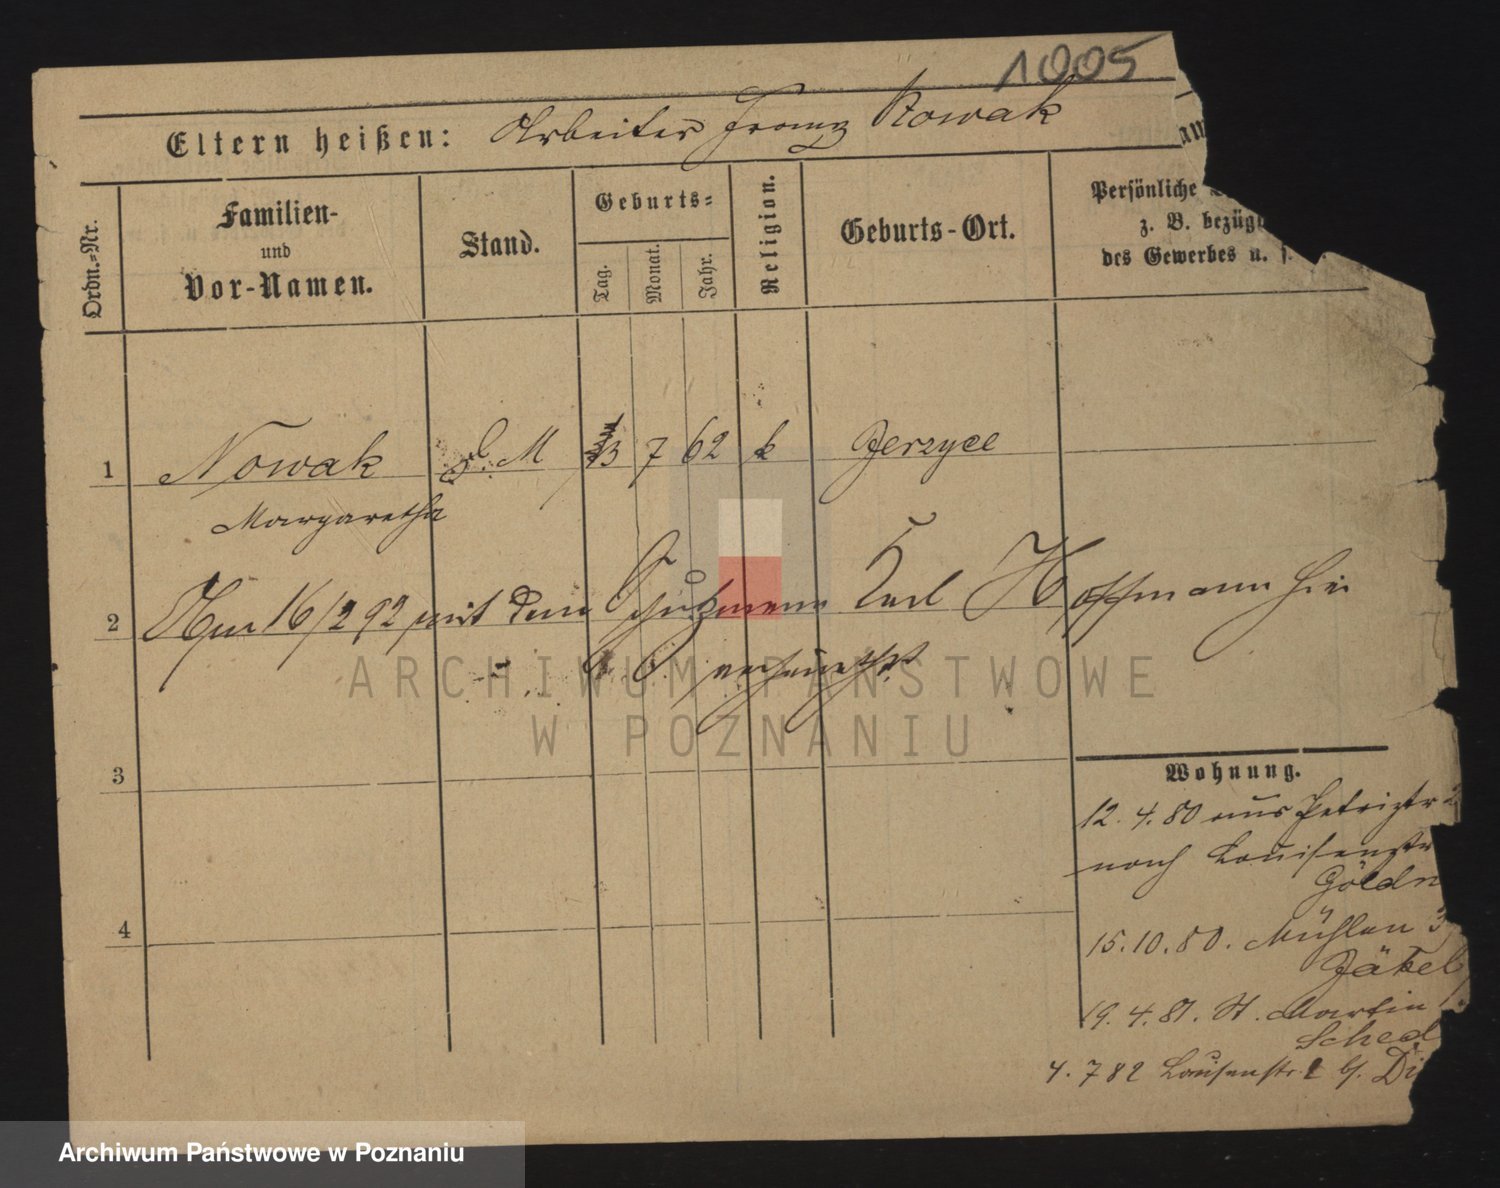 1005
Eltern heißen: Arbeiter Franz Nowak
Ordn.=Nr.
Familien-
und
Vor-Namen.
Stand.
Geburts=
Tag.
Monat.
Jahr.
Religion.
Geburts-Ort.
Persönliche
z. B. bezügl
des Gewerbes u. s.
1 Nowak d. M 13 7 62 k Jerzyce
Margaretha
2 16/2 92 mit dem Schutzmann Karl Hoffmann hier
verheirathet
3
4
Wohnung.
12. 4. 80 aus Petristr 2
nach Louisenstr
Göldn
15. 10. 80. Mühlen 3
Jäkel
19. 4. 81. St. Martin
Sched
4. 7 82 Louisenstr. 2 b/. Di
ARCHIWUM PAŃSTWOWE
W POZNANIU
Archiwum Państwowe w Poznaniu